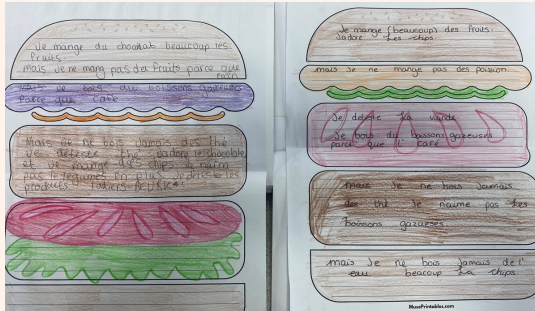 Je mange du chocolat beaucoup les
fruits.
Mais Je ne mang pas des fruits parce que
boisons gazeuses
parce que café
Mais Je ne bois Jamais des thé
Je déteste thé J'adore le chocolate
et Je mange des chips Je n'aim
pas le légumes en plus Je déteste les
produits
Je mange (beaucoup) des fruits.
J'adore Les chips.
mais Je ne mange pas des poission
Je déteste La viande
Je bois du boissons gazeuses
parce que l' café
mais Je ne bois Jamais
des thé Je n'aime pas Les
boissons gazueses.
mais Je ne bois Jamais de l'
eau beacoup La chips.
MusePrintables.com